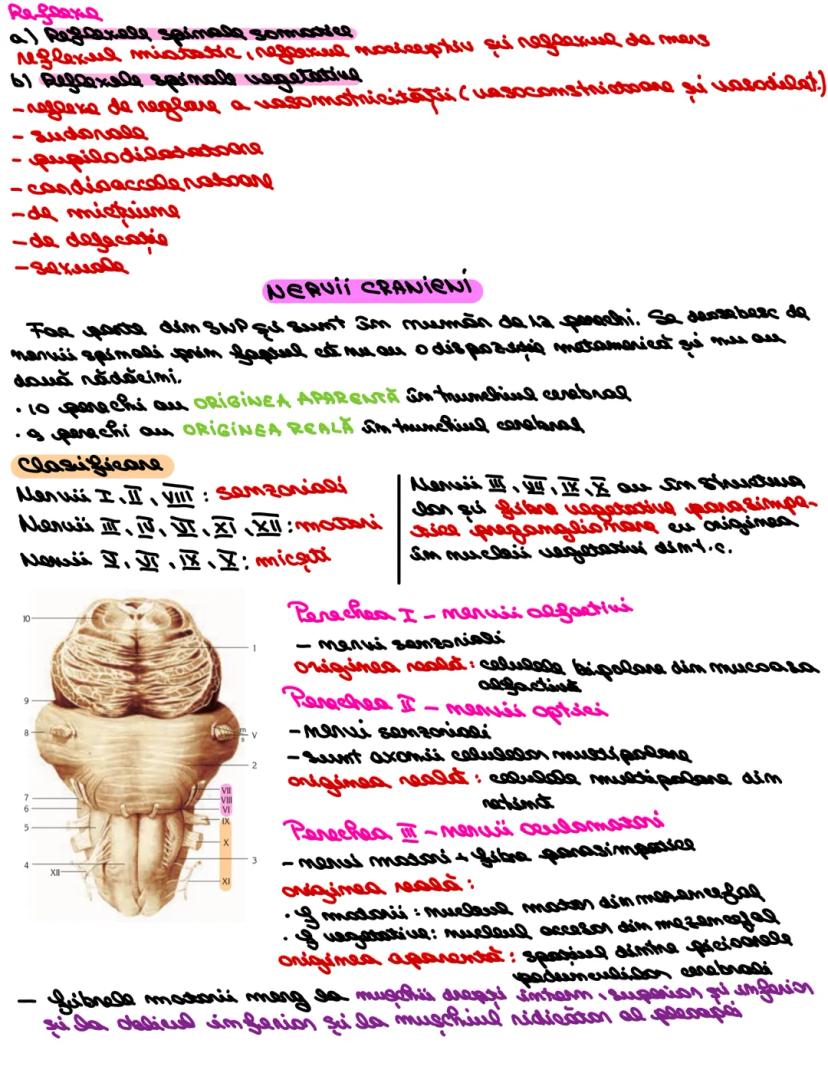 Reflexe
a) Reflexele spinale somatice
reflexul miotatic, reflexul nociceptiv și reflexul de mers
b) Reflexele spinale vegetative
-reflexe de reglare a vasomotricității (vasoconstrictoare și vasodilat.)
- sudorale
- pupilodilatatoare
- cardioacceleratoare
-de micțiune
-de defecație
-sexuale
NERVII CRANIENI
Fac parte din SNP și sunt în număr de 12 perechi. Se deosebesc de
nervii spinali prin faptul că nu au o dispoziție metamerică și nu au
două rădăcini.
• 10 perechi au ORIGINEA APARENTĂ în trunchiul cerebral
• 9 perechi au ORIGINEA REALĂ în trunchiul cerebral
Clasificare
Nervii I, II, VIII: senzoriali
Nervii III, IV, VI, XI, XII: motori
Nervii V, VI, IX, X: micști
Nervii III, VII, IX, X au în structura
lor și fibre vegetative parasimpa-
tice preganglionare cu originea
în nucleii vegetativi din t.c.
Perechea I - nervii olfactivi
- nervi senzoriali
originea reală: celulele bipolare din mucoasa
olfactivă
Perechea II - nervii optici
- nervi senzoriali
- sunt axonii celulelor multipolare
originea reală: celulele multipolare din
retină
Perechea III - nervii oculomotori
- nervi motori + fibre parasimpatice
originea reală:
• f motorii: nucleul motor din mezencefal
• f vegetative: nucleul accesor din mezencefal
originea aparentă: spațiul dintre picioarele
pedunculilor cerebrali
- fibrele motorii merg la mușchii drepți intern, superior și inferior
și la oblicul inferior și la mușchiul ridicător al pleoapei
10
1
9
8
m
s
V
2
7
VII
VIII
6
VI
IX
5
X
4
3
XII
XI